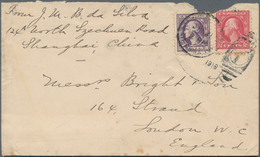 From J. M. B. da Silva
124 North Szechuen Road
Shanghai China
Messrs Bright & Son
164 Strand
London W. C
England
1919